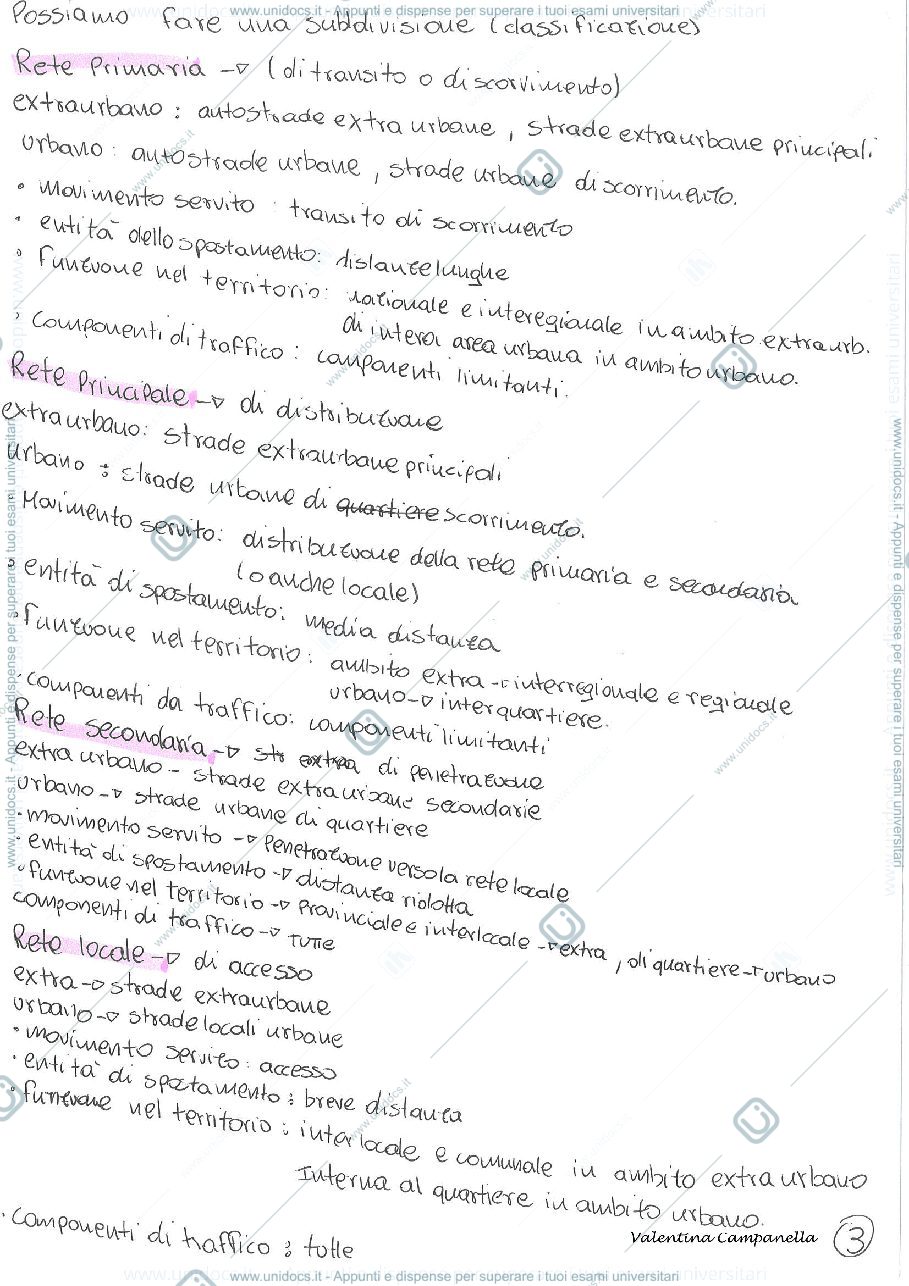 www.unidocs.it - Appunti e dispense per superare i tuoi esami universitari
Possiamo fare una suddivisione (classificazione)
Rete Primaria -> (di transito o di scorrimento)
extraurbano : autostrade extra urbane, strade extraurbane principali.
urbano : autostrade urbane, strade urbane di scorrimento.
• Movimento servito : transito di scorrimento
• entità dello spostamento: distanze lunghe
• Funzione nel territorio: nazionale e interegionale in ambito extraurb.
di intera area urbana in ambito urbano.
• componenti di traffico : componenti limitanti.
Rete Principale -> di distribuzione
extraurbano: strade extraurbane principali
urbano : strade urbane di quartiere scorrimento.
• Movimento servito: distribuzione della rete primaria e secondaria
(o anche locale)
• entità di spostamento: media distanza
• Funzione nel territorio: ambito extra -> interregionale e regionale
urbano -> interquartiere.
• componenti da traffico: componenti limitanti
Rete secondaria -> str extra di penetrazione
extra urbano - strade extraurbane secondarie
urbano -> strade urbane di quartiere
• movimento servito -> Penetrazione verso la rete locale
• entità di spostamento -> distanza ridotta
• funzione nel territorio -> Provinciale e interlocale -> extra, di quartiere -> urbano
componenti di traffico -> TUTTE
Rete locale -> di accesso
extra -> strade extraurbane
urbano -> strade locali urbane
• movimento servito: accesso
• entità di spostamento : breve distanza
• funzione nel territorio : interlocale e comunale in ambito extra urbano
Interna al quartiere in ambito urbano.
• componenti di traffico : tutte
Valentina Campanella
3
www.unidocs.it - Appunti e dispense per superare i tuoi esami universitari